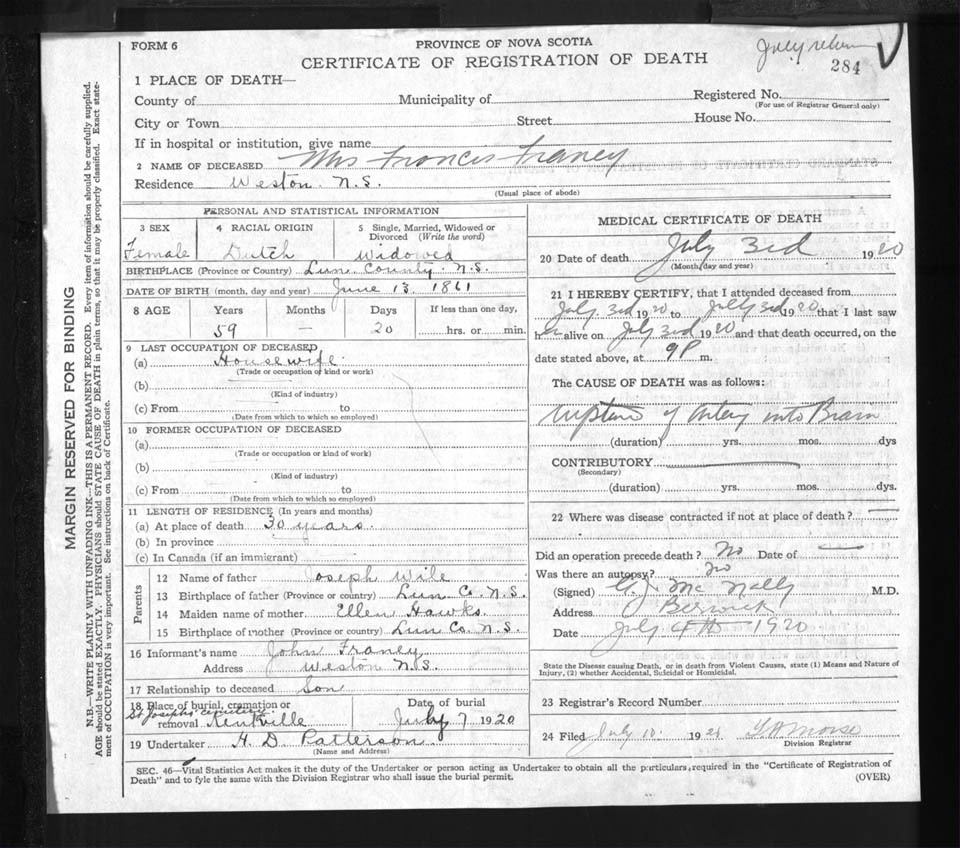 FORM 6
PROVINCE OF NOVA SCOTIA
CERTIFICATE OF REGISTRATION OF DEATH
July return
284
1 PLACE OF DEATH—
County of Municipality of Registered No.
(For use of Registrar General only)
City or Town Street House No.
If in hospital or institution, give name
2 NAME OF DECEASED Mrs Francis Franey
Residence Weston N.S.
(Usual place of abode)
MARGIN RESERVED FOR BINDING
N.B.—WRITE PLAINLY WITH UNFADING INK—THIS IS A PERMANENT RECORD. Every item of information should be carefully supplied.
AGE should be stated EXACTLY. PHYSICIANS should STATE CAUSE OF DEATH in plain terms, so that it may be properly classified. Exact state-
ment of OCCUPATION is very important. See instructions on back of Certificate.
PERSONAL AND STATISTICAL INFORMATION
3 SEX 4 RACIAL ORIGIN 5 Single, Married, Widowed or
Divorced (Write the word)
Female Dutch Widowed
BIRTHPLACE (Province or Country) Lun. County N.S.
DATE OF BIRTH (month, day and year) June 13. 1861
8 AGE Years Months Days If less than one day,
59 — 20 hrs. or min.
9 LAST OCCUPATION OF DECEASED
(a) Housewife
(Trade or occupation or kind or work)
(b)
(Kind of industry)
(c) From to
(Date from which to which so employed)
10 FORMER OCCUPATION OF DECEASED
(a)
(Trade or occupation or kind of work)
(b)
(Kind of industry)
(c) From to
(Date from which to which so employed)
11 LENGTH OF RESIDENCE (In years and months)
(a) At place of death 30 years.
(b) In province
(c) In Canada (if an immigrant)
Parents
12 Name of father Joseph Wile
13 Birthplace of father (Province or country) Lun Co. N.S.
14 Maiden name of mother Ellen Hawks
15 Birthplace of mother (Province or country) Lun Co. N.S.
16 Informant's name John Franey
Address Weston N.S.
17 Relationship to deceased Son
18 Place of burial, cremation or Date of burial
St Josephs cemetery
removal Kentville July 7 1920
19 Undertaker H. D. Patterson
(Name and Address)
MEDICAL CERTIFICATE OF DEATH
20 Date of death July 3rd 1920
(Month, day and year)
21 I HEREBY CERTIFY, that I attended deceased from
July 3rd 1920 to July 3rd 1920 that I last saw
her alive on July 3rd 1920 and that death occurred, on the
date stated above, at 9P m.
The CAUSE OF DEATH was as follows:
rupture of Artery into Brain
(duration) yrs. mos. dys
CONTRIBUTORY
(Secondary)
(duration) yrs. mos. dys.
22 Where was disease contracted if not at place of death? —
Did an operation precede death? No Date of —
Was there an autopsy? No
(Signed) J. McNally M.D.
Address Berwick
Date July 4th 1920
State the Disease causing Death, or in death from Violent Causes, state (1) Means and Nature of
Injury, (2) whether Accidental, Suicidal or Homicidal.
23 Registrar's Record Number
24 Filed July 10. 192 Morse
Division Registrar
SEC. 46—Vital Statistics Act makes it the duty of the Undertaker or person acting as Undertaker to obtain all the particulars required in the "Certificate of Registration of
Death" and to fyle the same with the Division Registrar who shall issue the burial permit. (OVER)